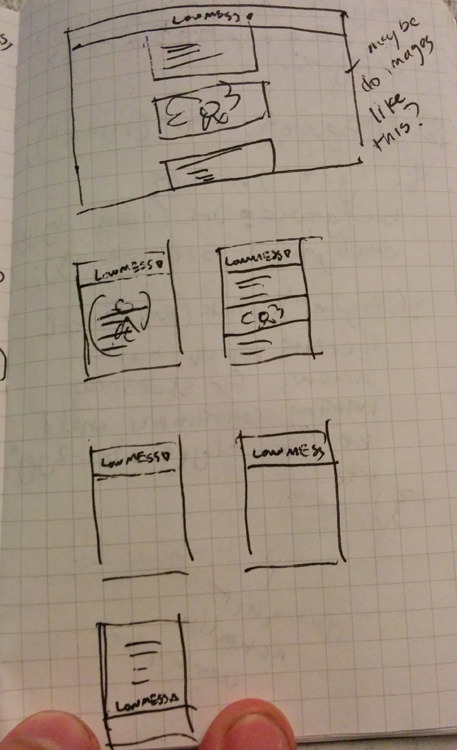 LOWMESS
maybe
do images
like
this?
LOWMESS
LOWMESS
LOWMESS
LOWMESS
LOWMESS